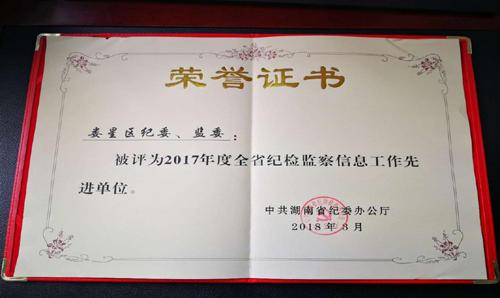 荣誉证书
娄星区纪委、监委：
被评为2017年度全省纪检监察信息工作先
进单位。
中共湖南省纪委办公厅
2018年3月